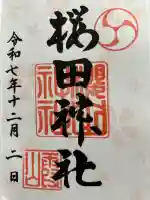 桜田神社
霞山
令和七年十二月二日